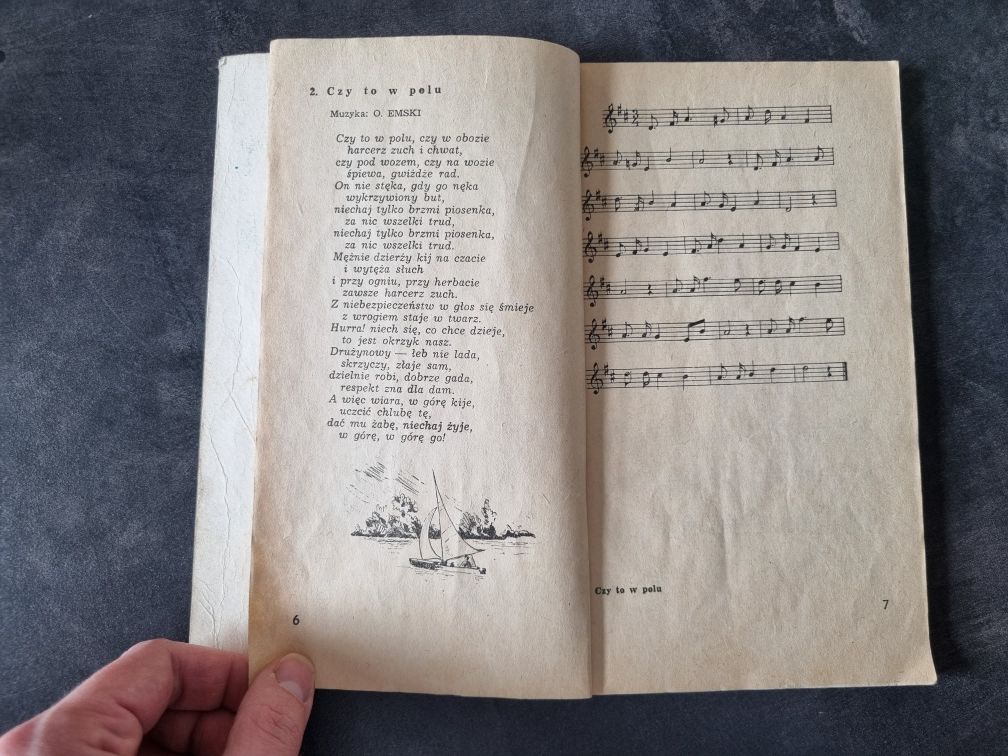 2. Czy to w polu
Muzyka: O. EMSKI
Czy to w polu, czy w obozie
harcerz zuch i chwat,
czy pod wozem, czy na wozie
śpiewa, gwiżdże rad.
On nie stęka, gdy go nęka
wykrzywiony but,
niechaj tylko brzmi piosenka,
za nic wszelki trud,
niechaj tylko brzmi piosenka,
za nic wszelki trud.
Mężnie dzierży kij na czacie
i wytęża słuch
i przy ogniu, przy herbacie
zawsze harcerz zuch.
Z niebezpieczeństw w głos się śmieje
z wrogiem staje w twarz.
Hurra! niech się, co chce dzieje,
to jest okrzyk nasz.
Drużynowy — łeb nie lada,
skrzyczy, złaje sam,
dzielnie robi, dobrze gada,
respekt zna dla dam.
A więc wiara, w górę kije,
uczcić chlubę tę,
dać mu żabę, niechaj żyje,
w górę, w górę go!
6
2
4
Czy to w polu
7